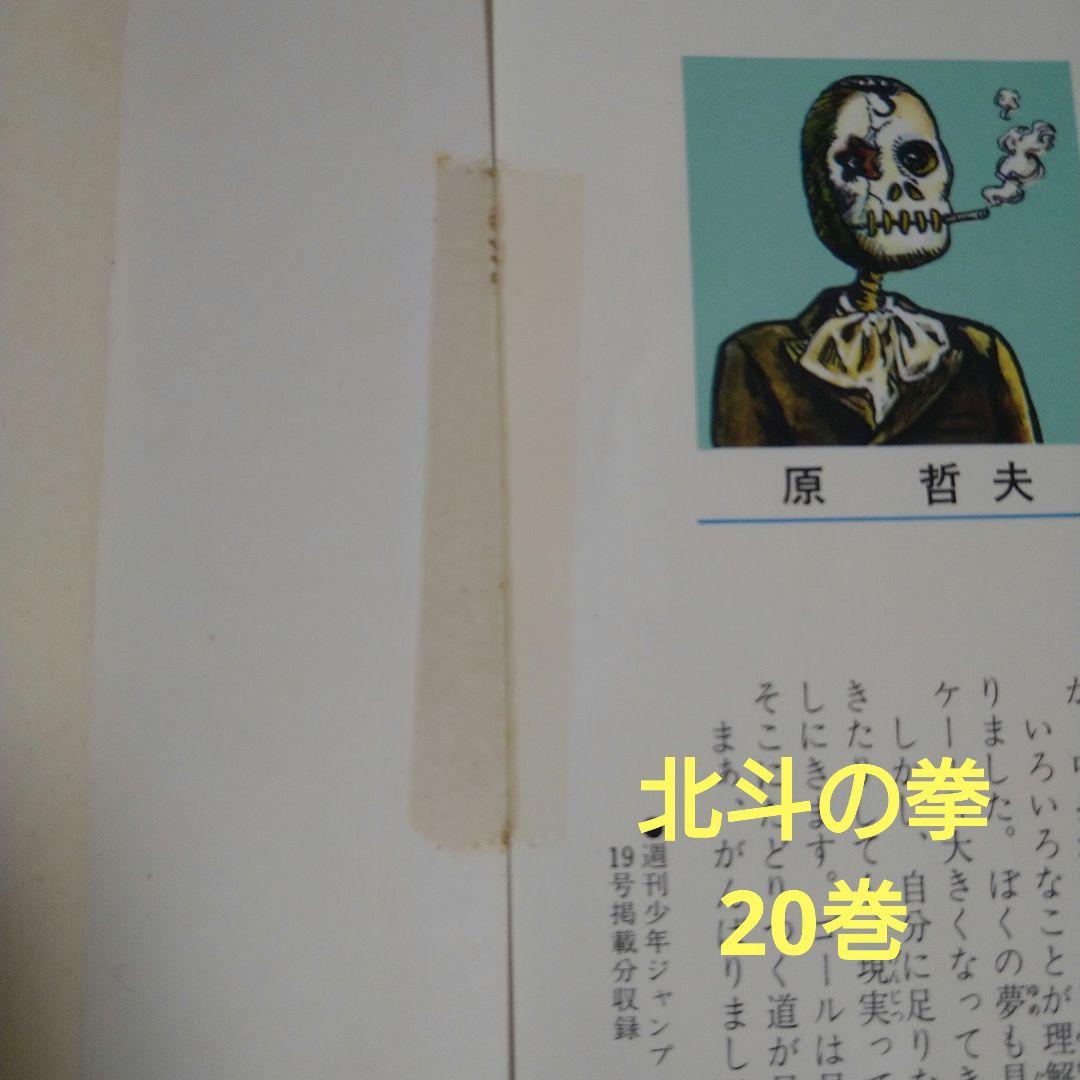 原 哲夫
いろいろなことが理解
りました。ぼくの夢も見
ゆめ
大きくなってき
自分に足りな
現実って
げんじつ
しにきます。ゴールは
そこにたどりつく道が
まあ、がんばりまし
●週刊少年ジャンプ
19号掲載分収録
北斗の拳
20巻